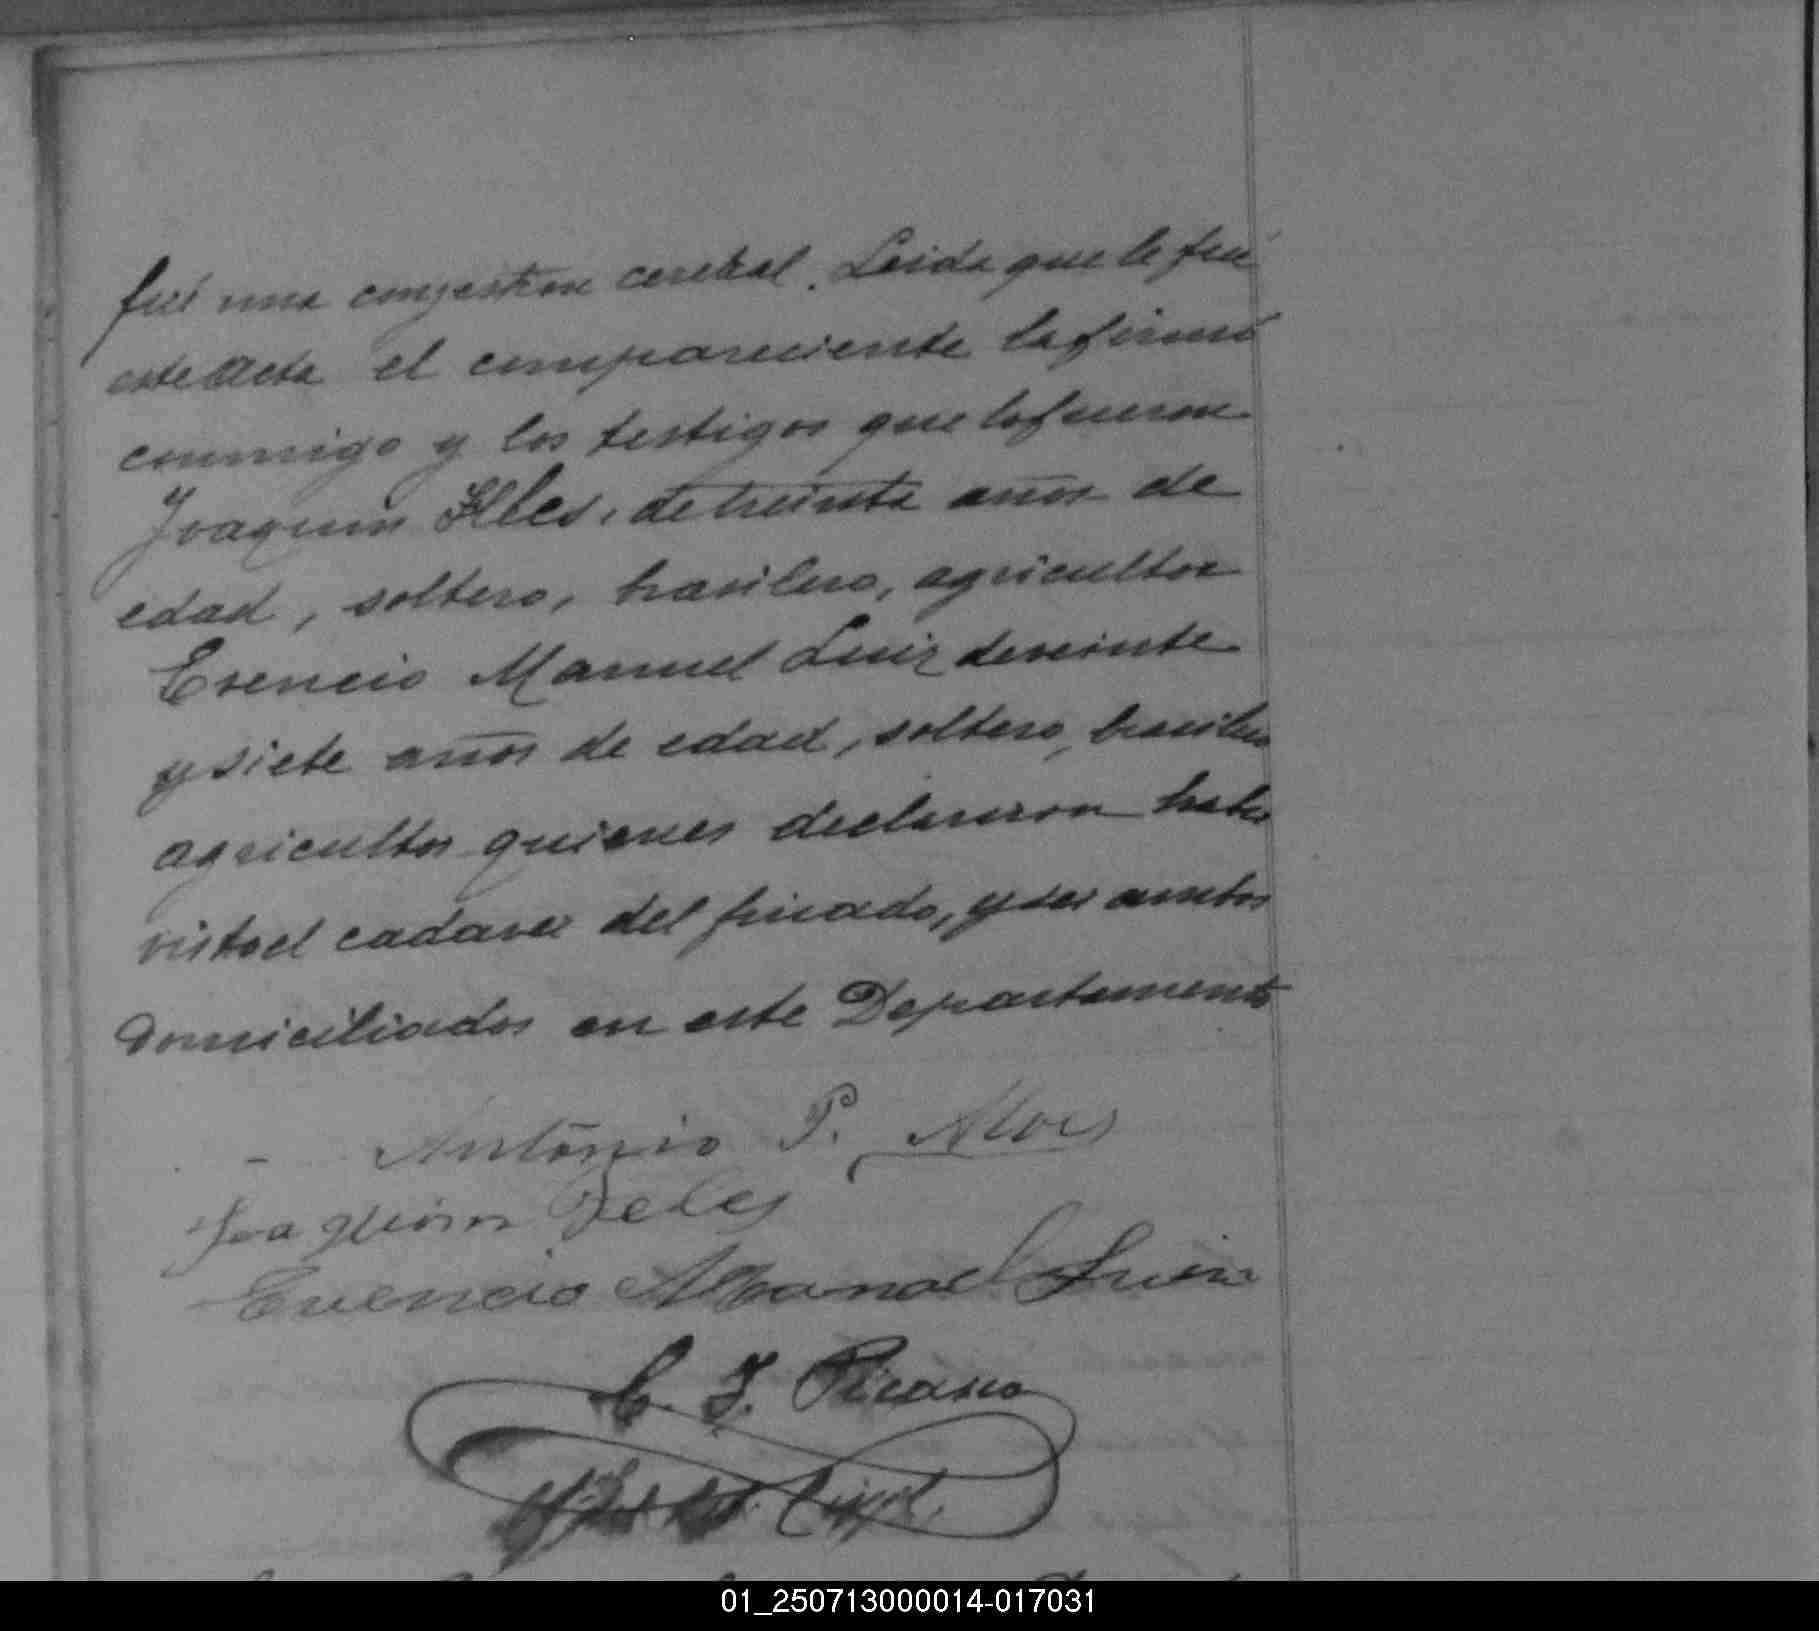 fué una congestion cerebral. Leida que le fué
este acta el compareciente la firmó
conmigo y los testigos que lo fueron
Joaquin de treinta años de
edad, soltero, brasilero, agricultor
Evencio Manuel Luiz de veinte
y siete años de edad, soltero, brasilero
agricultor quienes declararon haber
visto el cadaver del finado, y ser ambos
domiciliados en este Departamento
Antônio P.
Joaquim Teles
Evencio Manoel Luiz
C. F. Picasso
Civil
01_250713000014-017031